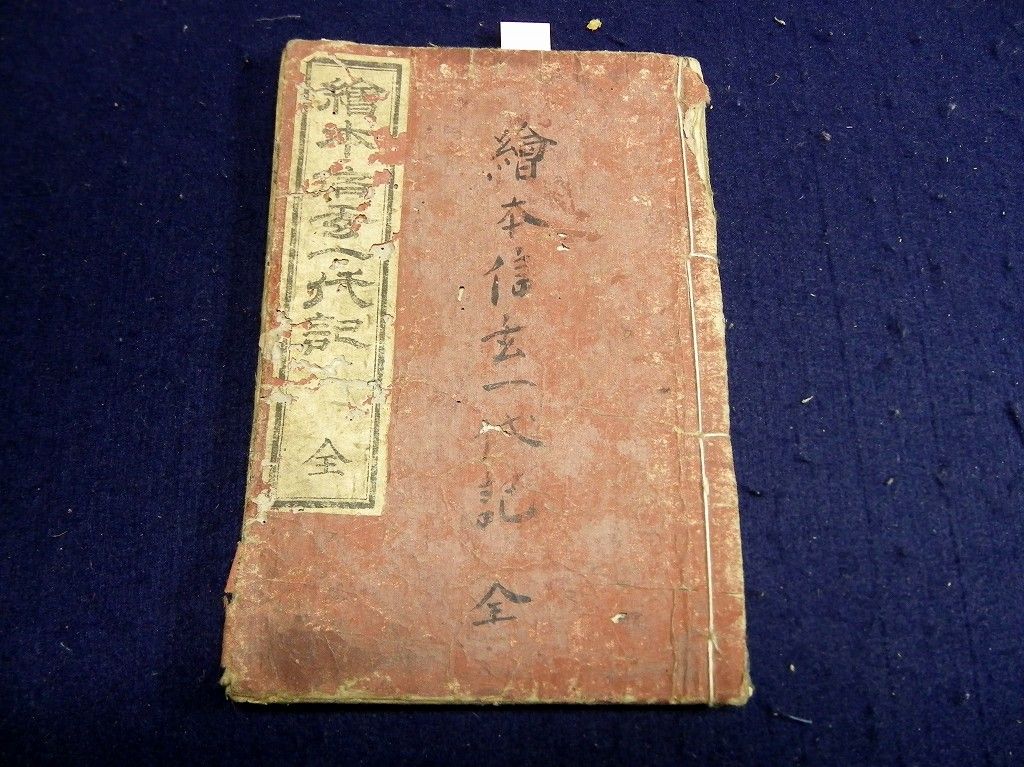 繪本信玄一代記 全
繪本信玄一代記 全